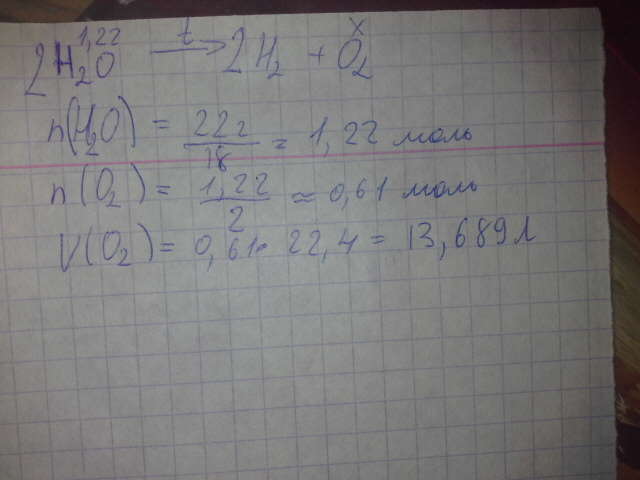 1,22 t x
2H₂O → 2H₂ + O₂
n(H₂O) = 22г / 18 = 1,22 моль
n(O₂) = 1,22 / 2 ≈ 0,61 моль
V(O₂) = 0,61 · 22,4 = 13,689 л